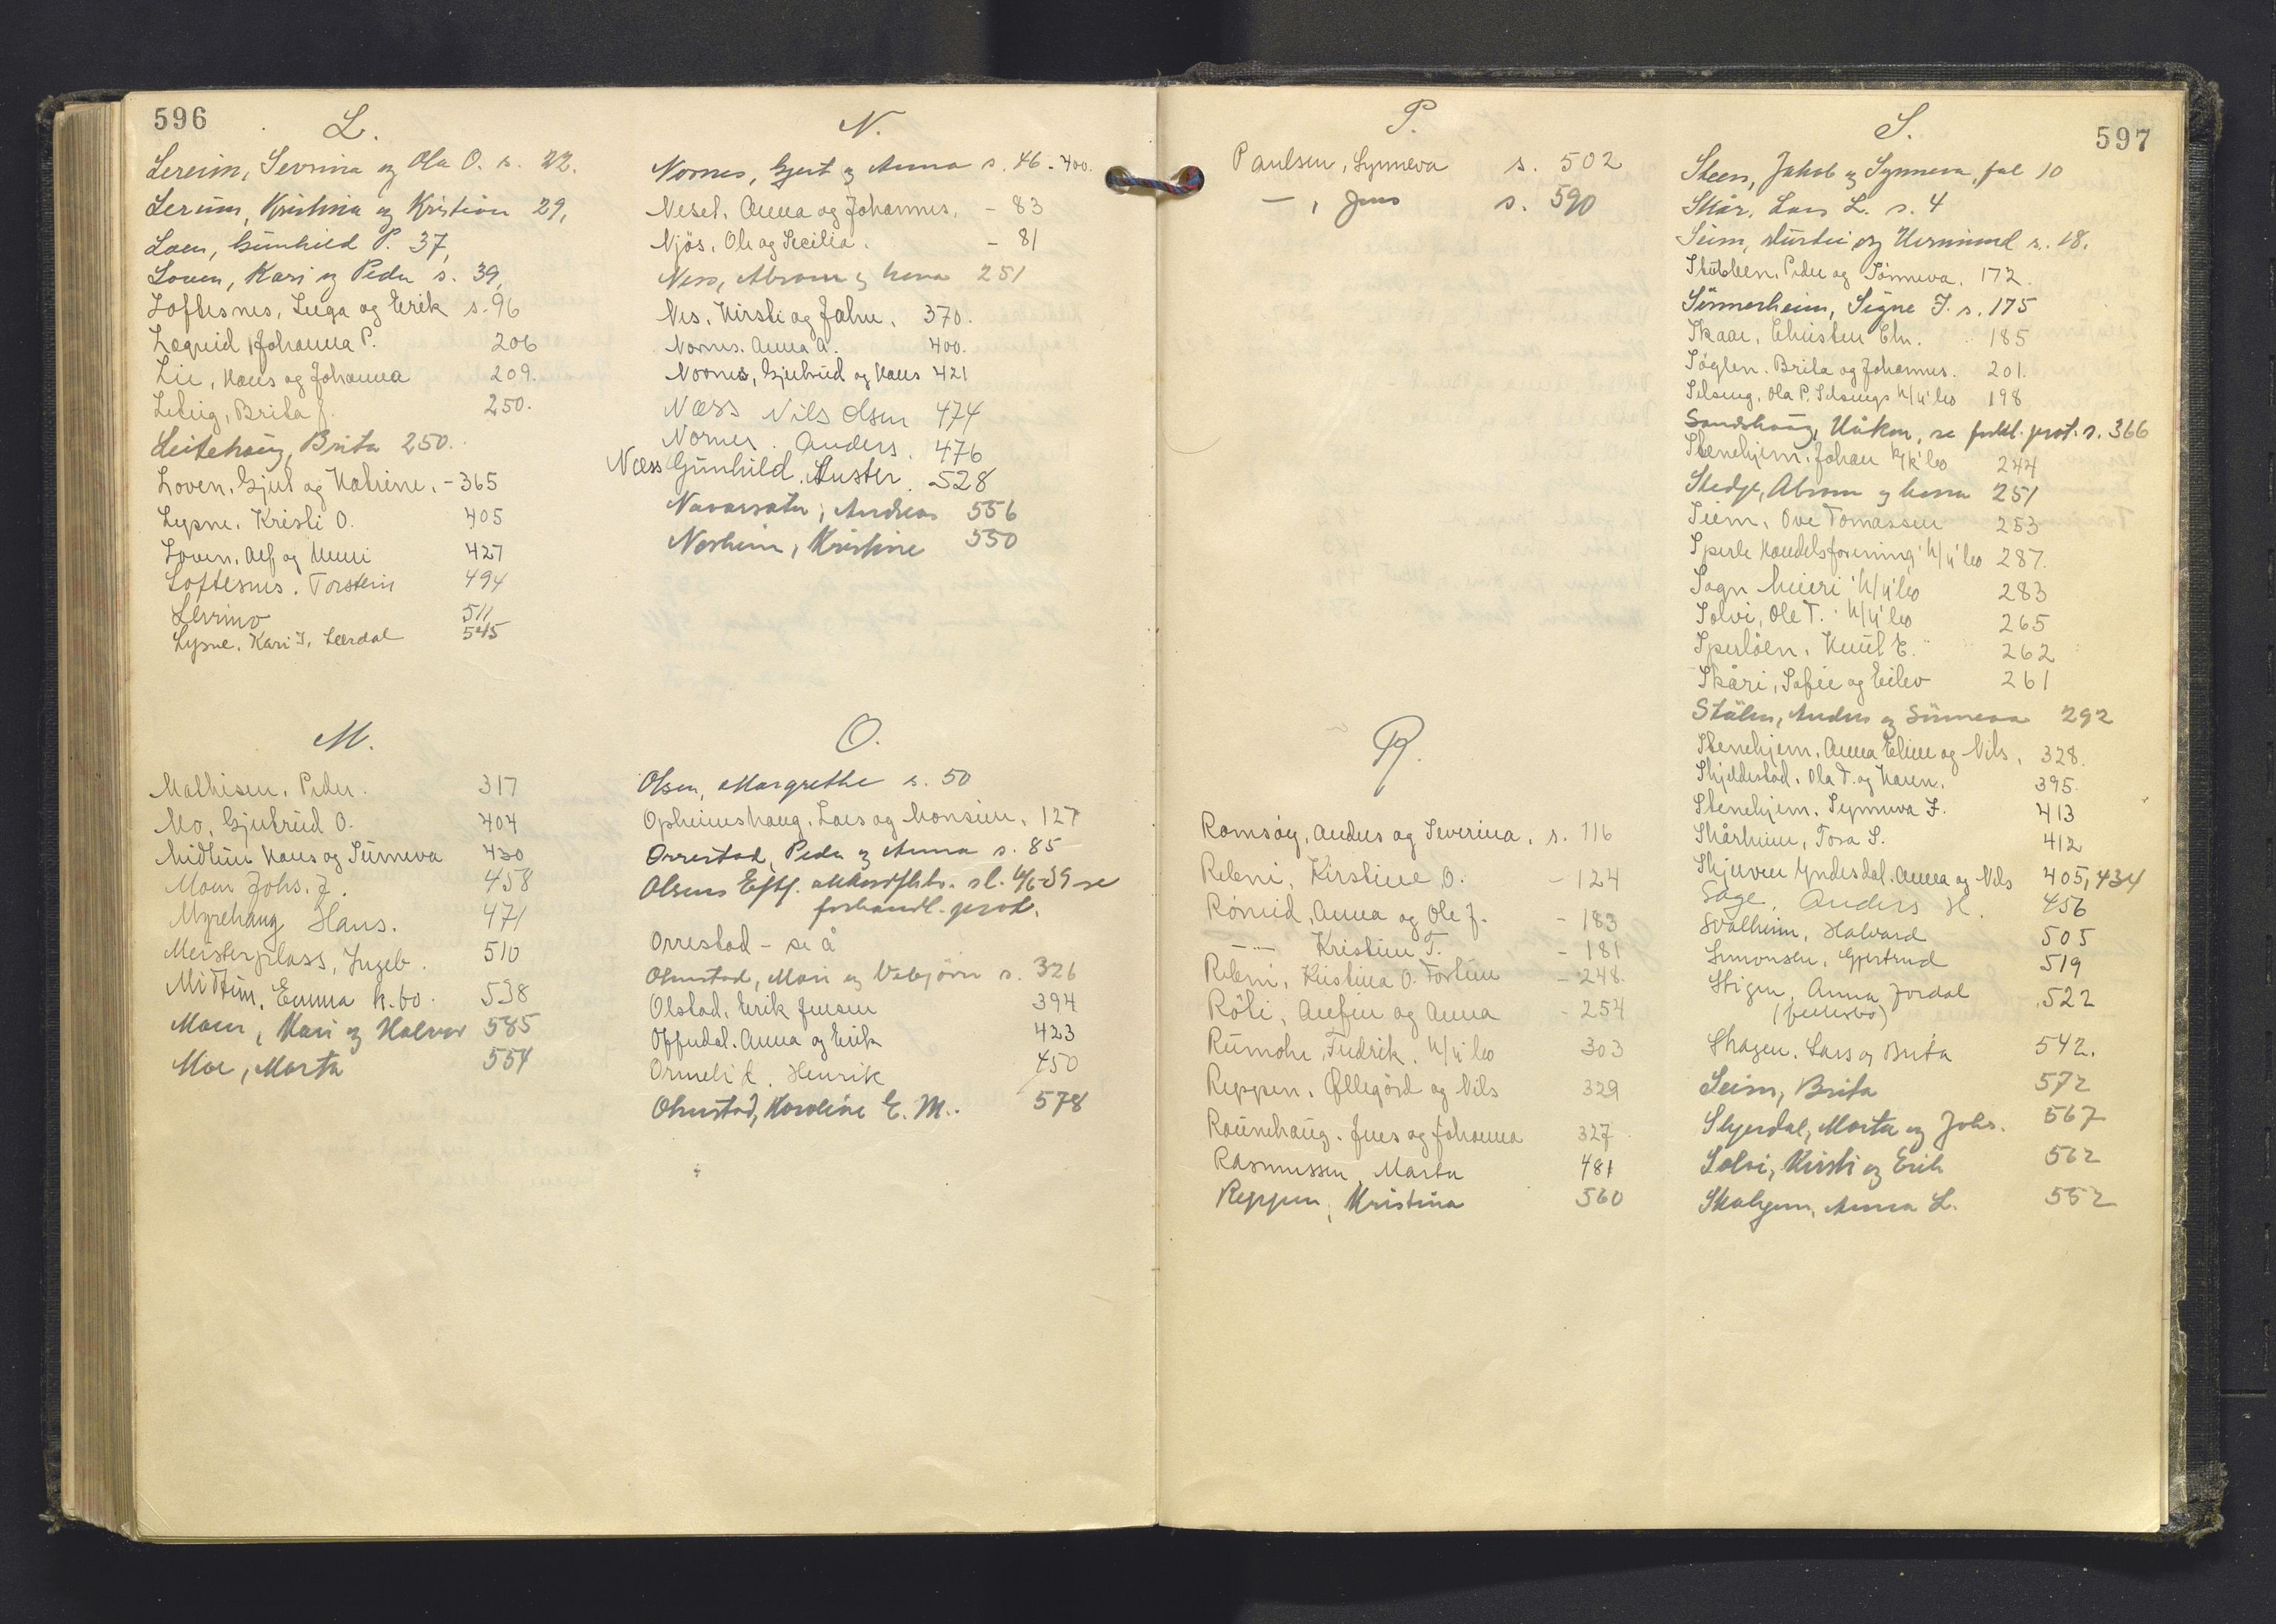 596
L.
Lereim, Sevrina og Ola O. s. 22.
Lerum, Kristina og Kristian 29,
Loen, Gunhild P. 37,
Loven, Kari og Peder s. 39,
Loftesnes, Inga og Erik s. 96
Lægreid, Johanna P. 206
Lie, Hans og Johanna 209.
Brita J. 250.
Leitehaug, Brita 250.
Loven. Gjert og Katrine. - 365
Lysne. Kristi O. 405
Loven. Alf og Unni 427
Loftesnes. Torstein 494
511
Lysne. Kari I. Lærdal 545
M.
Mathisen. Peder. 317
Mo. Gjertrud O. 404
Midtun Hans og Sunneva 430
Moen Johs. J. 458
Myrehaug Hans. 471
Meisterplass, Ingeb. 510
Midtun. Emma k. bo. 538
Moen, Kari og Halvor 585
Moe, Marta 554
N.
Nornes, Gjert og Anna s. 46. 400.
Nesel. Anna og Johannes. - 83
Njøs. Ole og Secilia. - 81
Ness, Abram og 251
Nes. Kirsti og John. 370.
Nornes. Anna A. 400.
Nornes, Gjertrud og Hans 421
Næss Nils Olsen 474
Nornes. Anders. 476
Næss Gunhild. Luster. 528
Navarsete, Andreas 556
Norheim, Kristine 550
O.
Olsen, Margrethe s. 50
Opheimshaug. Lars og Monsine. 127
Orrestad, Peder og Anna s. 85
Olsens Eftf. sl. 4/6-39 se
forhandl. prot.
Orrestad - se å
Olmstad, Mari og Vebjørn s. 326
Olstad. Erik Jensen 394
Offerdal. Anna og Erik 423
Ormelid. Henrik 450
Olmstad, Karoline E. M. 578
P.
Paulsen, Synneva s. 502
- , Jens s. 590
R.
Romsøy, Anders og Severina. s. 116
Rebni, Kirstine O. - 124
Rømeid, Anna og Ole J. - 183
- - Kristine T. - 181
Rebni, Kristina O. Fortun - 248.
Røti, Anfin og Anna - 254
Rumohr, Fredrik. 303
Reppen. Øllegård og Nils 329
Raunehaug. Jens og Johanna 327
Rasmussen, Marta 481
Reppen, Kristina 560
597
S.
Steen, Jakob og Synneva, fol 10
Skår. Lars L. s. 4
Seim, Sturlei og Hermund s. 18.
Stubben. Peder og Sønneva. 172.
Sønnerheim, Signe J. s. 175
Skaar, Christen Chr. 185
Søglen. Brita og Johannes. 201.
Selseng, Ola P. Selsengs 198
Sandshaug, Håkon, se forhl. prot. s. 366
Stenehjem. Johan 244
Stedje, Abram og 251
Seim, Ove Tomassen 253
Sperle Handelsforening 287.
Sogn Meieri 283
Solvi, Ole T. 265
Sperløen. Knut E. 262
Skåri, Sofie og Eilev 261
Stølen, Anders og Sunneva 292
Stenehjem. Anna Eline og Nils. 328.
Skjeldestad. Ola T. og Karen. 395.
Stenehjem. Synneva J. 413
Skårheim, Tora S. 412
Skjerven Yndesdal. Anna og Nils 405, 434
Søge, Anders H. 456
Svalheim, Halvard 505
Simonsen, Gjertrud 519
Stigen, Anna Jordal 522
(fellesbo)
Skagen. Lars og Brita 542.
Seim, Brita 572
Skjerdal, Marta og Johs. 567
Solvi, Kirsti og Erik 562
Anna L. 552